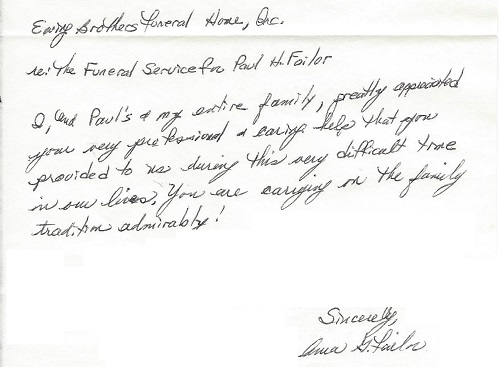 Ewing Brothers Funeral Home, Inc.
re: The Funeral Service for Paul H. Failor
I, and Paul's & my entire family, greatly appreciated
your very professional & caring help that you
provided to us during this very difficult time
in our lives. You are carrying on the family
tradition admirably!
Sincerely,
G. Failor